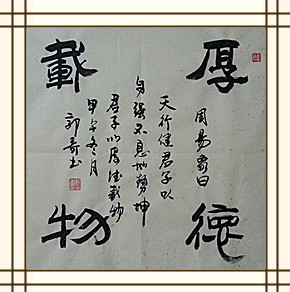 厚德
載物
周易象曰
天行健君子以
自强不息地势坤
君子以厚德載物
甲午冬月
郭奇书